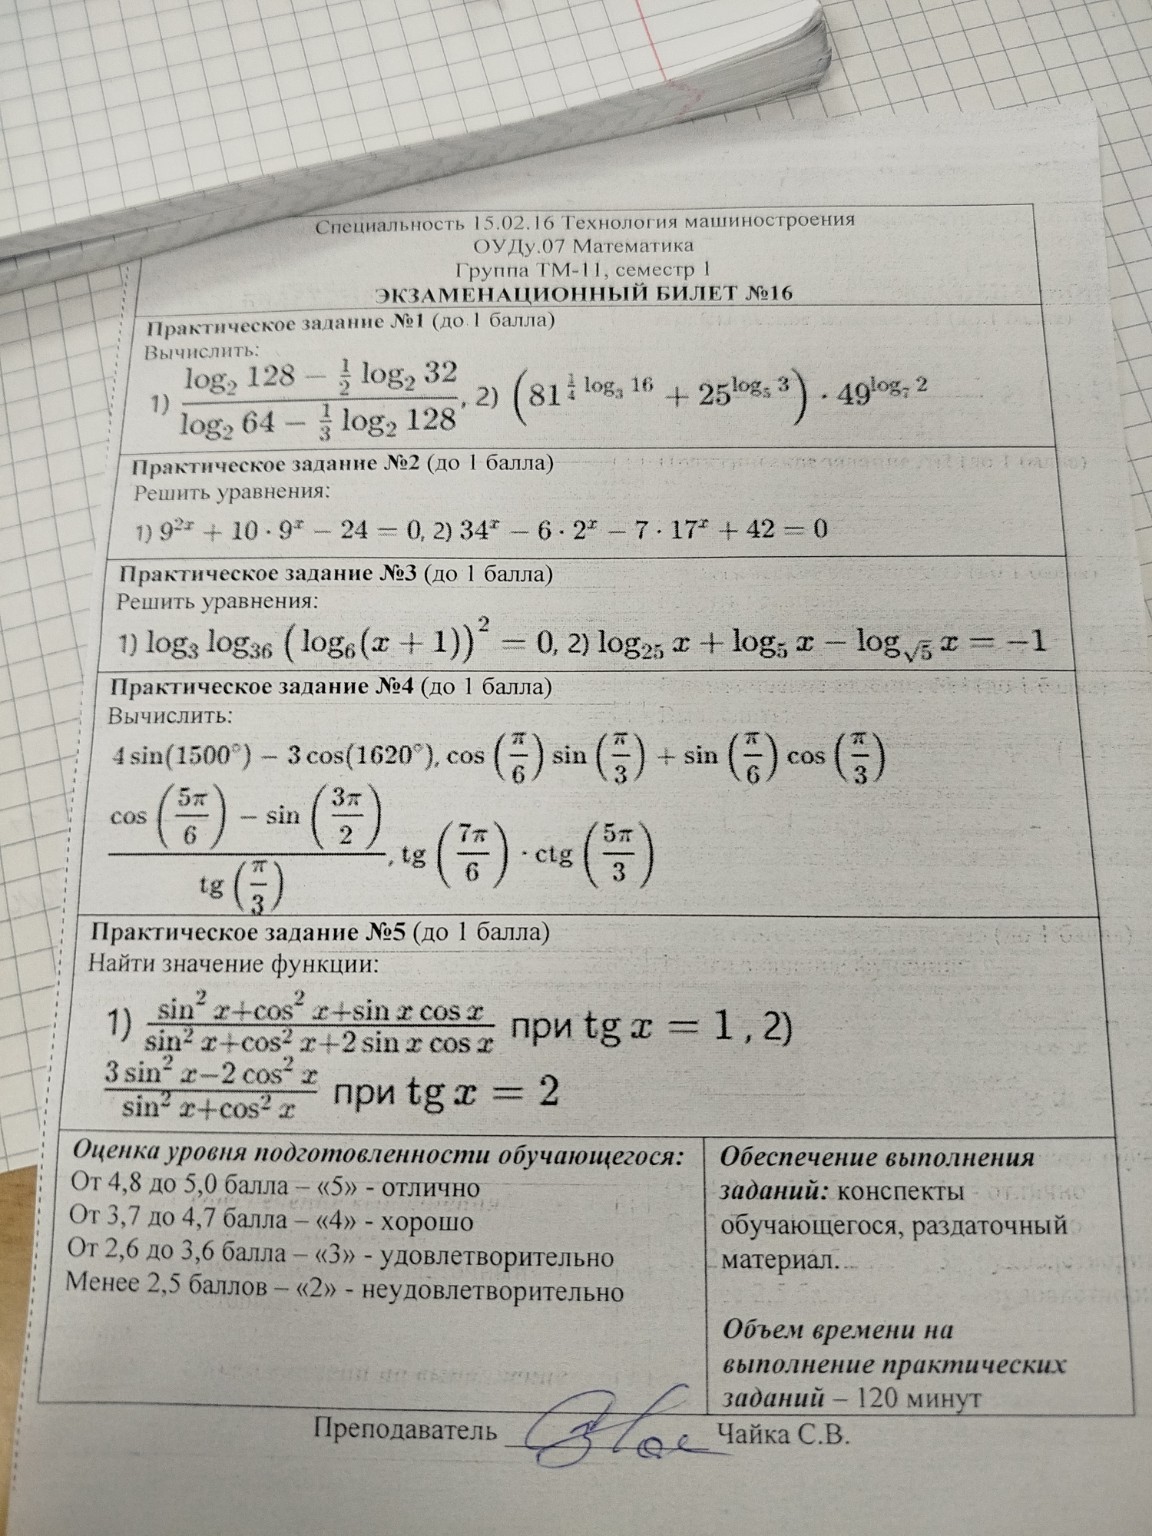 Специальность 15.02.16 Технология машиностроения
ОУДу.07 Математика
Группа ТМ-11, семестр 1
ЭКЗАМЕНАЦИОННЫЙ БИЛЕТ №16
Практическое задание №1 (до 1 балла)
Вычислить:
1) \frac{\log_2 128 - \frac{1}{2} \log_2 32}{\log_2 64 - \frac{1}{3} \log_2 128}, 2) (81^{\frac{1}{4} \log_3 16} + 25^{\log_5 3}) · 49^{\log_7 2}
Практическое задание №2 (до 1 балла)
Решить уравнения:
1) 9^{2x} + 10 · 9^x − 24 = 0, 2) 34^x − 6 · 2^x − 7 · 17^x + 42 = 0
Практическое задание №3 (до 1 балла)
Решить уравнения:
1) log_3 log_{36} (log_6(x + 1))^2 = 0, 2) log_{25} x + log_5 x − log_{√5} x = −1
Практическое задание №4 (до 1 балла)
Вычислить:
4 sin(1500°) − 3 cos(1620°), cos (\frac{π}{6}) sin (\frac{π}{3}) + sin (\frac{π}{6}) cos (\frac{π}{3})
\frac{cos (\frac{5π}{6}) − sin (\frac{3π}{2})}{tg (\frac{π}{3})}, tg (\frac{7π}{6}) · ctg (\frac{5π}{3})
Практическое задание №5 (до 1 балла)
Найти значение функции:
1) \frac{sin^2 x+cos^2 x+sin x cos x}{sin^2 x+cos^2 x+2 sin x cos x} при tg x = 1 , 2)
\frac{3 sin^2 x−2 cos^2 x}{sin^2 x+cos^2 x} при tg x = 2
Оценка уровня подготовленности обучающегося:
От 4,8 до 5,0 балла – «5» - отлично
От 3,7 до 4,7 балла – «4» - хорошо
От 2,6 до 3,6 балла – «3» - удовлетворительно
Менее 2,5 баллов – «2» - неудовлетворительно
Обеспечение выполнения
заданий: конспекты
обучающегося, раздаточный
материал.
Объем времени на
выполнение практических
заданий – 120 минут
Преподаватель Чайка С.В.